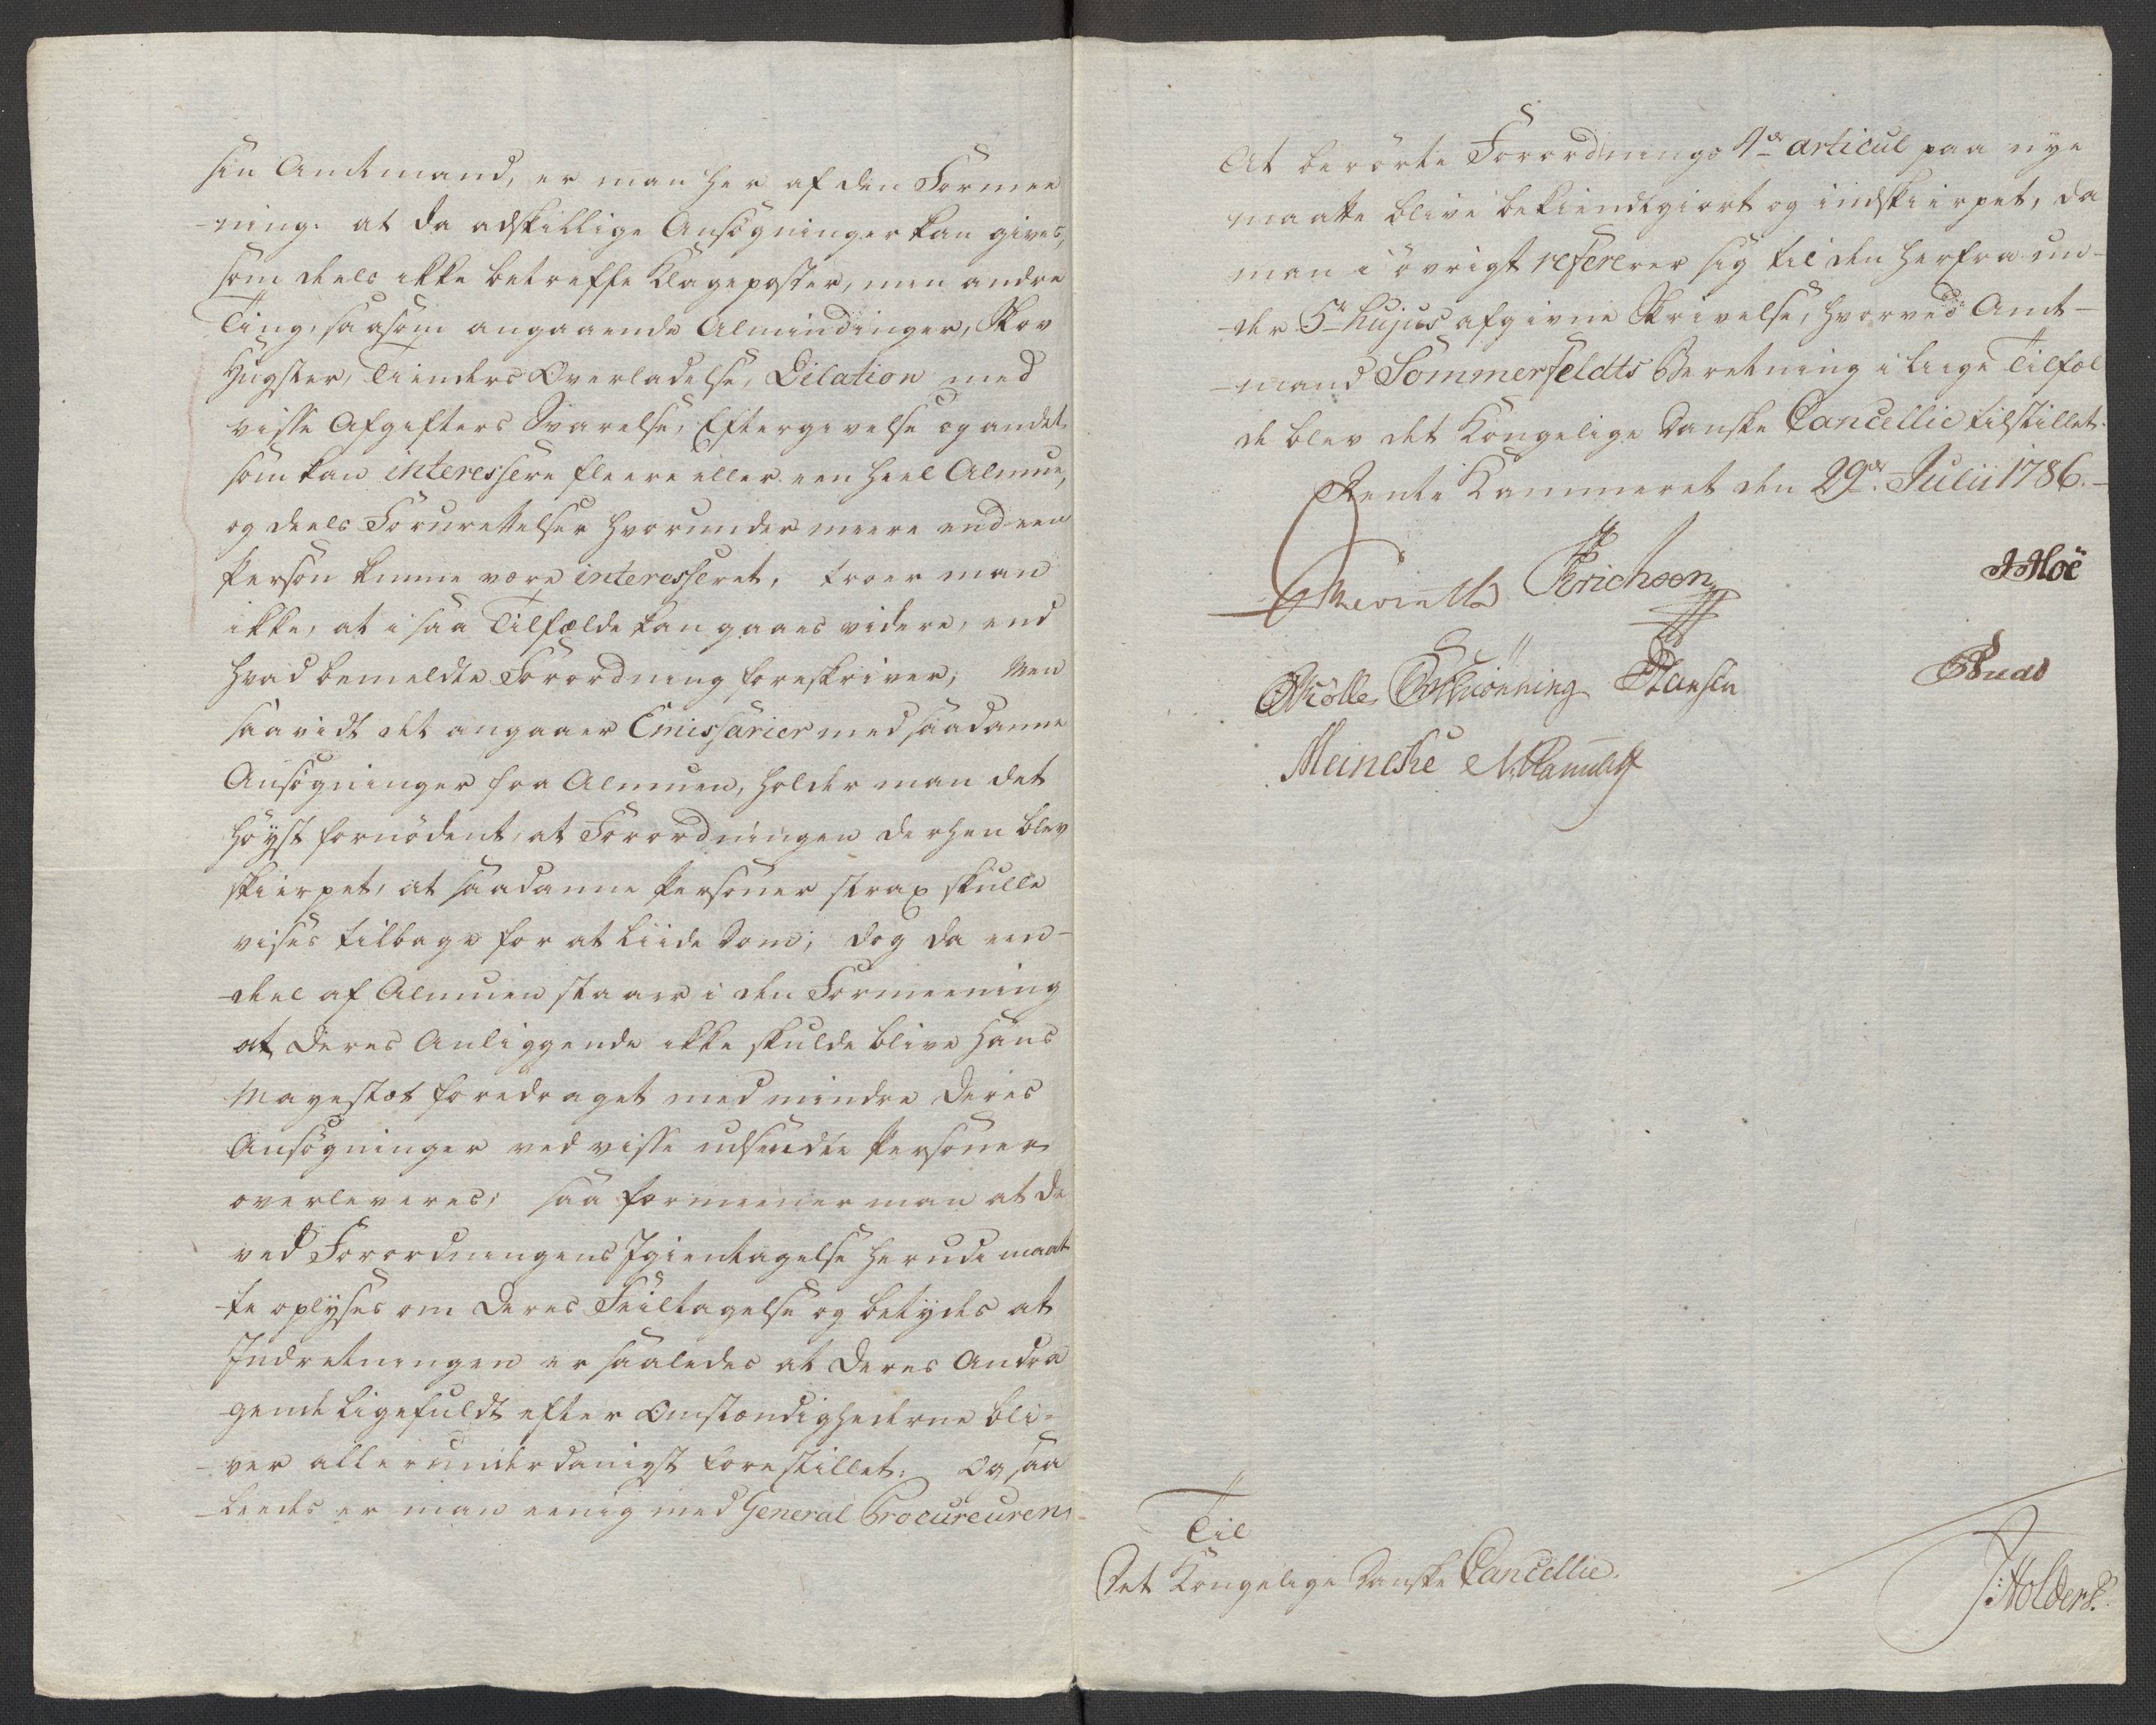 sin Amtmand, er man her af den Formee
-ning: at da adskillige Ansøgninger kan gives,
som deels ikke betreffe Klageposter, men andre
Ting, saasom angaaende Almindinger, Skov
Hugster, Tienders Overladelse, Dilation med
visse Afgifters Svarelse, Eftergivelse og andet
som kan interessere fleere eller een heel Almue,
og deels Forurettelser hvorunder meere end een
Person kunne være interesseret, troer man
ikke, at i saa Tilfælde kan gaaes videre, end
hvad bemeldte Forordning foreskriver; Men
saavidt det angaaer Emissarier med saadanne
Ansøgninger fra Almuen, holder man det
høyst fornødent, at Forordningen derhen blev
skierpet, at saadanne Personer strax skulle
vises tilbage for at liide Dom; dog da een-
-deel af Almuen staaer i den Formeening
at deres Anliggende ikke skulde blive Hans
Mayestæt foredraget med mindre deres
Ansøgninger ved visse udsendte Personer
overleveres; saa formeener man at de
ved Forordningens Igientagelse herudi maat
-te oplyses om deres Feiltagelse og betydes at
Indretningen er saaledes at deres Andra
-gende ligefuldt efter Omstændighederne bli-
-ver allerunderdanigst forestillet; Og saa
-leedes er man eenig med General Procureuren
At berørte Forordnings 1ste articul paa nye
maatte blive bekiendtgiort og indskierpet, da
man i øvrigt refererer sig til den herfra un-
-der 5te hujus afgivne Skrivelse, hvorved Amt-
-mand Sommerfeldts Beretning i liige Tilfæl
de blev det Kongelige Danske Cancellie tilstillet.
Rente Kammeret den 29de Julii 1786.
Erichsen
Hoë
Hansen
Meincke
Til
Det Kongelige Danske Cancellie.